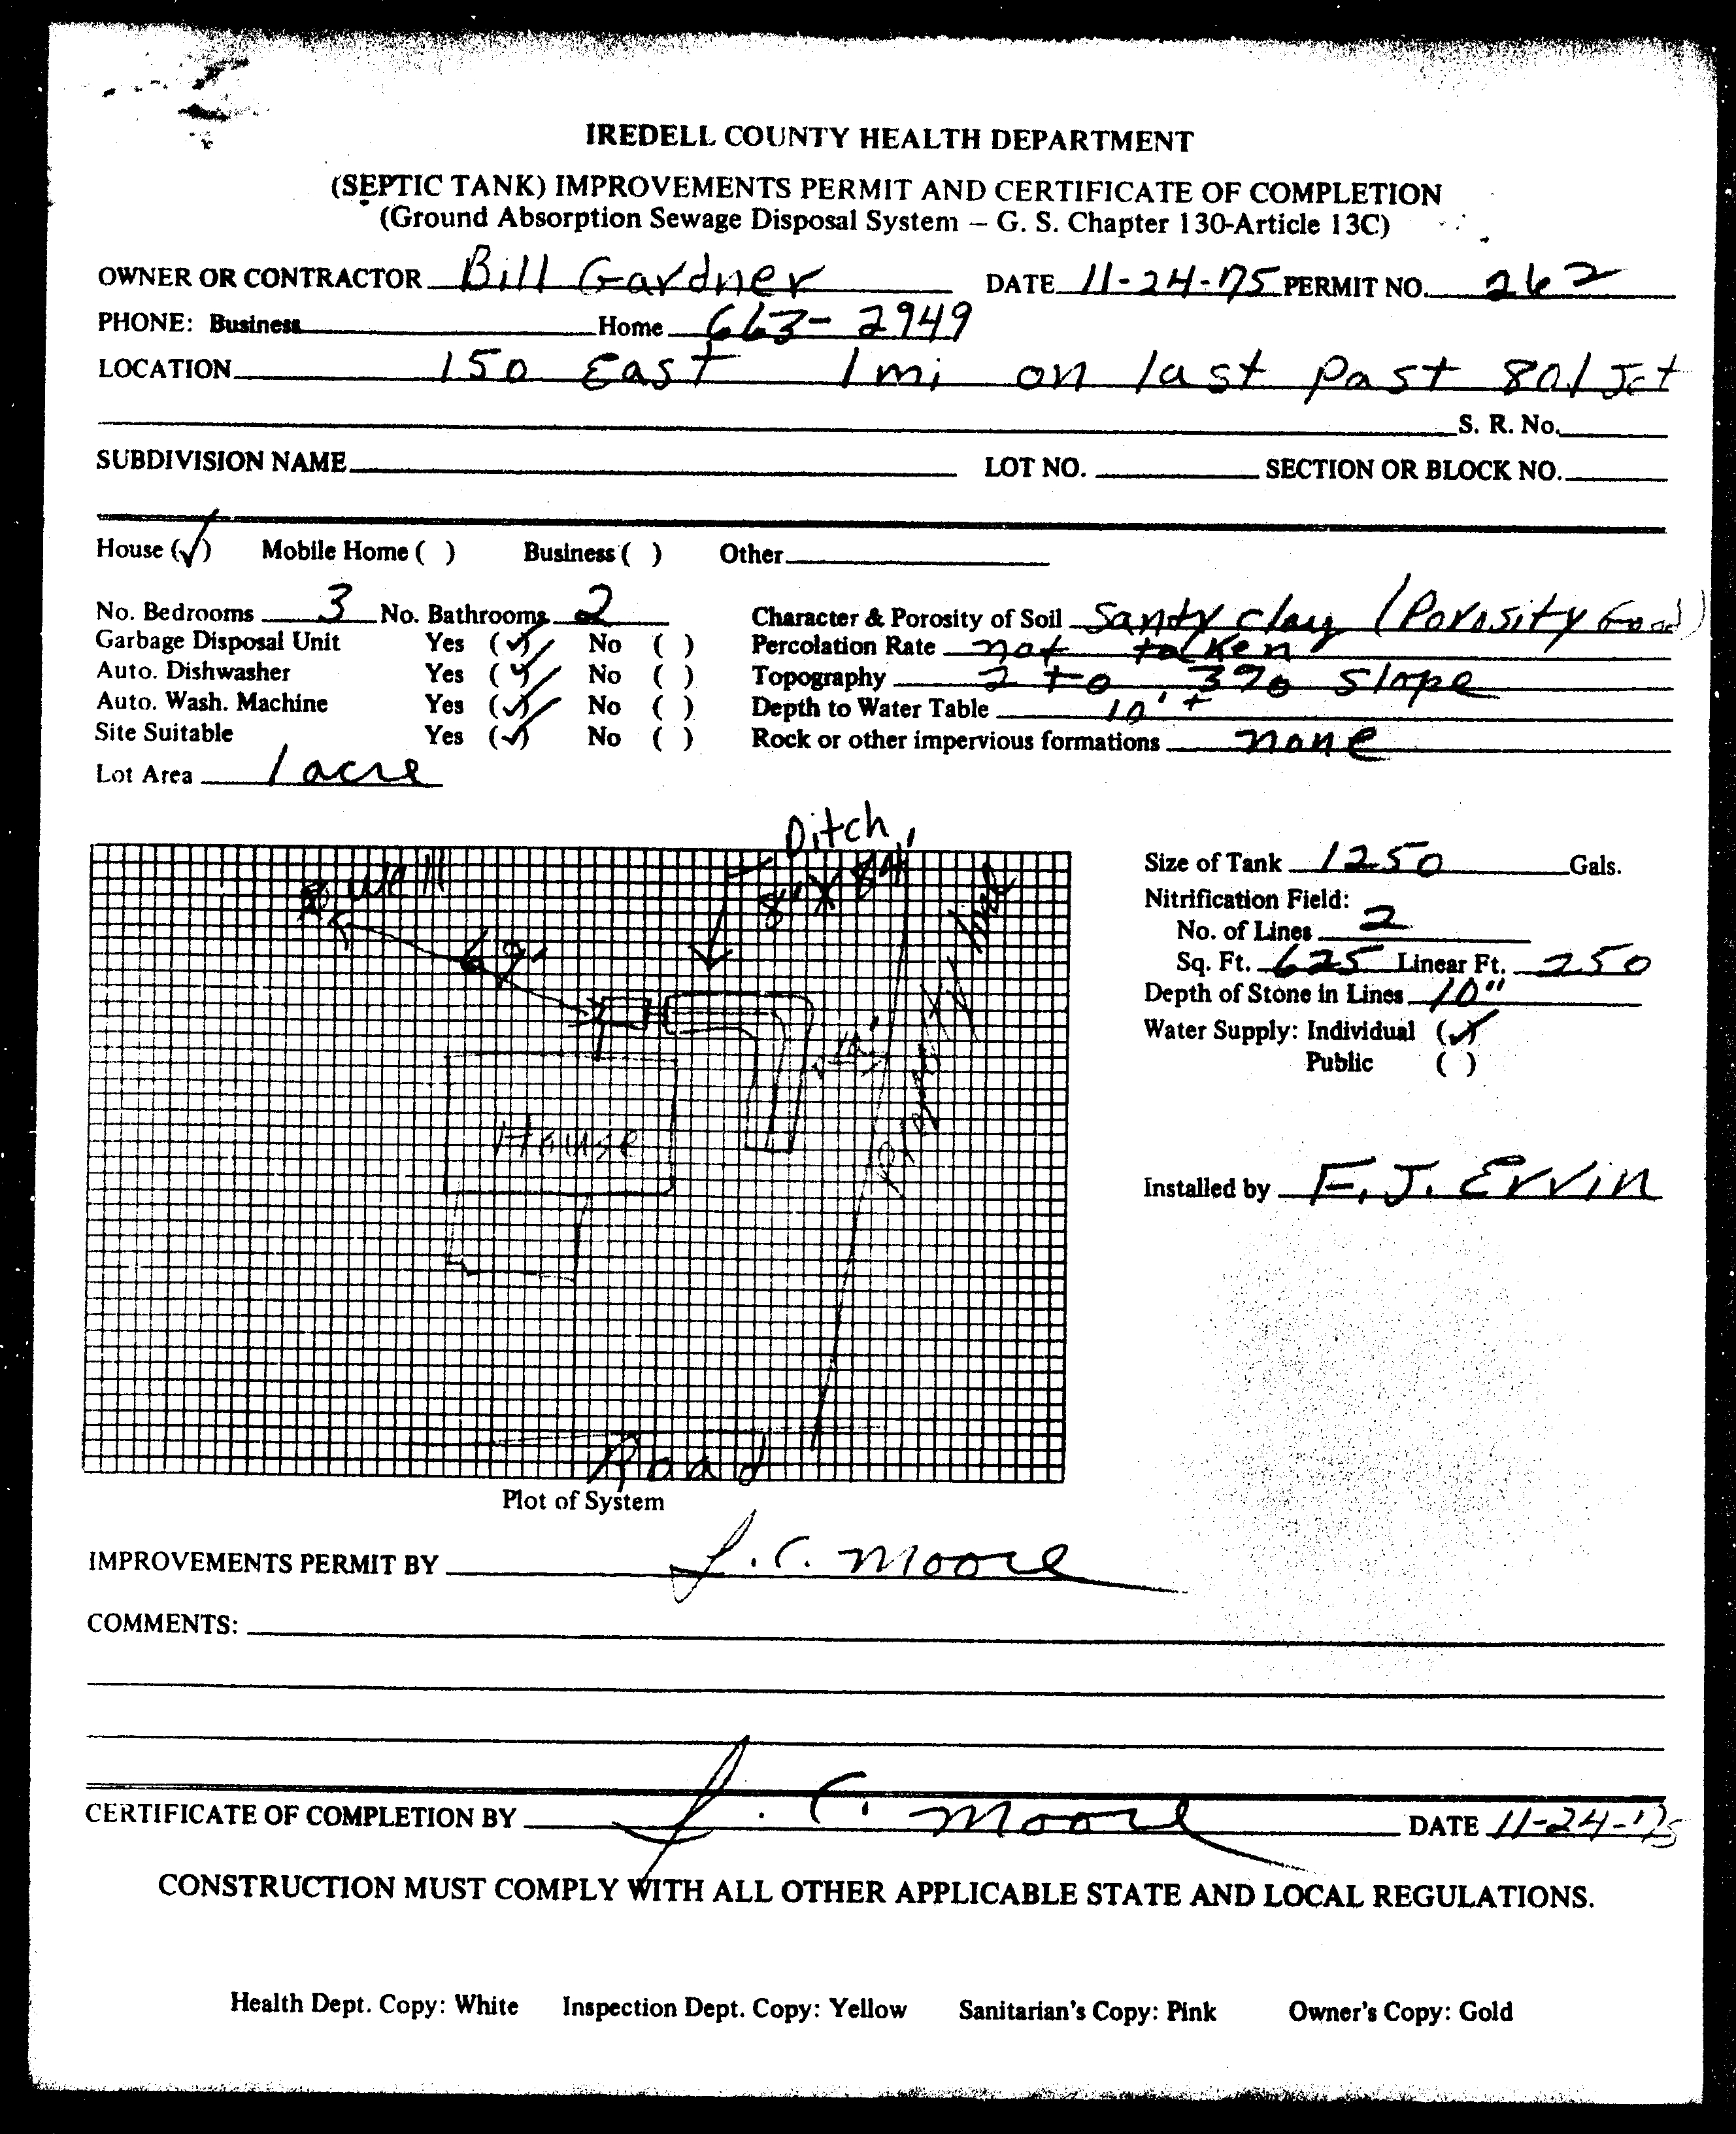 IREDELL COUNTY HEALTH DEPARTMENT
(SEPTIC TANK) IMPROVEMENTS PERMIT AND CERTIFICATE OF COMPLETION
(Ground Absorption Sewage Disposal System – G. S. Chapter 130-Article 13C)
OWNER OR CONTRACTOR Bill Gardner DATE 11-24-75 PERMIT NO. 262
PHONE: Business Home 663-2949
LOCATION 150 East 1 mi on last past 801 Jct
S. R. No.
SUBDIVISION NAME LOT NO. SECTION OR BLOCK NO.
House (✓) Mobile Home ( ) Business ( ) Other
No. Bedrooms 3 No. Bathrooms 2 Character & Porosity of Soil Sandy clay (Porosity Good)
Garbage Disposal Unit Yes (✓) No ( ) Percolation Rate not taken
Auto. Dishwasher Yes (✓) No ( ) Topography 2 to 3% Slope
Auto. Wash. Machine Yes (✓) No ( ) Depth to Water Table 10' +
Site Suitable Yes (✓) No ( ) Rock or other impervious formations none
Lot Area 1 acre
Ditch
Well
69'
House
property line
Road
Plot of System
Size of Tank 1250 Gals.
Nitrification Field:
No. of Lines 2
Sq. Ft. 625 Linear Ft. 250
Depth of Stone in Lines 10"
Water Supply: Individual (✓)
Public ( )
Installed by F. J. Ervin
IMPROVEMENTS PERMIT BY J. C. Moore
COMMENTS:
CERTIFICATE OF COMPLETION BY J. C. Moore DATE 11-24-75
CONSTRUCTION MUST COMPLY WITH ALL OTHER APPLICABLE STATE AND LOCAL REGULATIONS.
Health Dept. Copy: White Inspection Dept. Copy: Yellow Sanitarian's Copy: Pink Owner's Copy: Gold